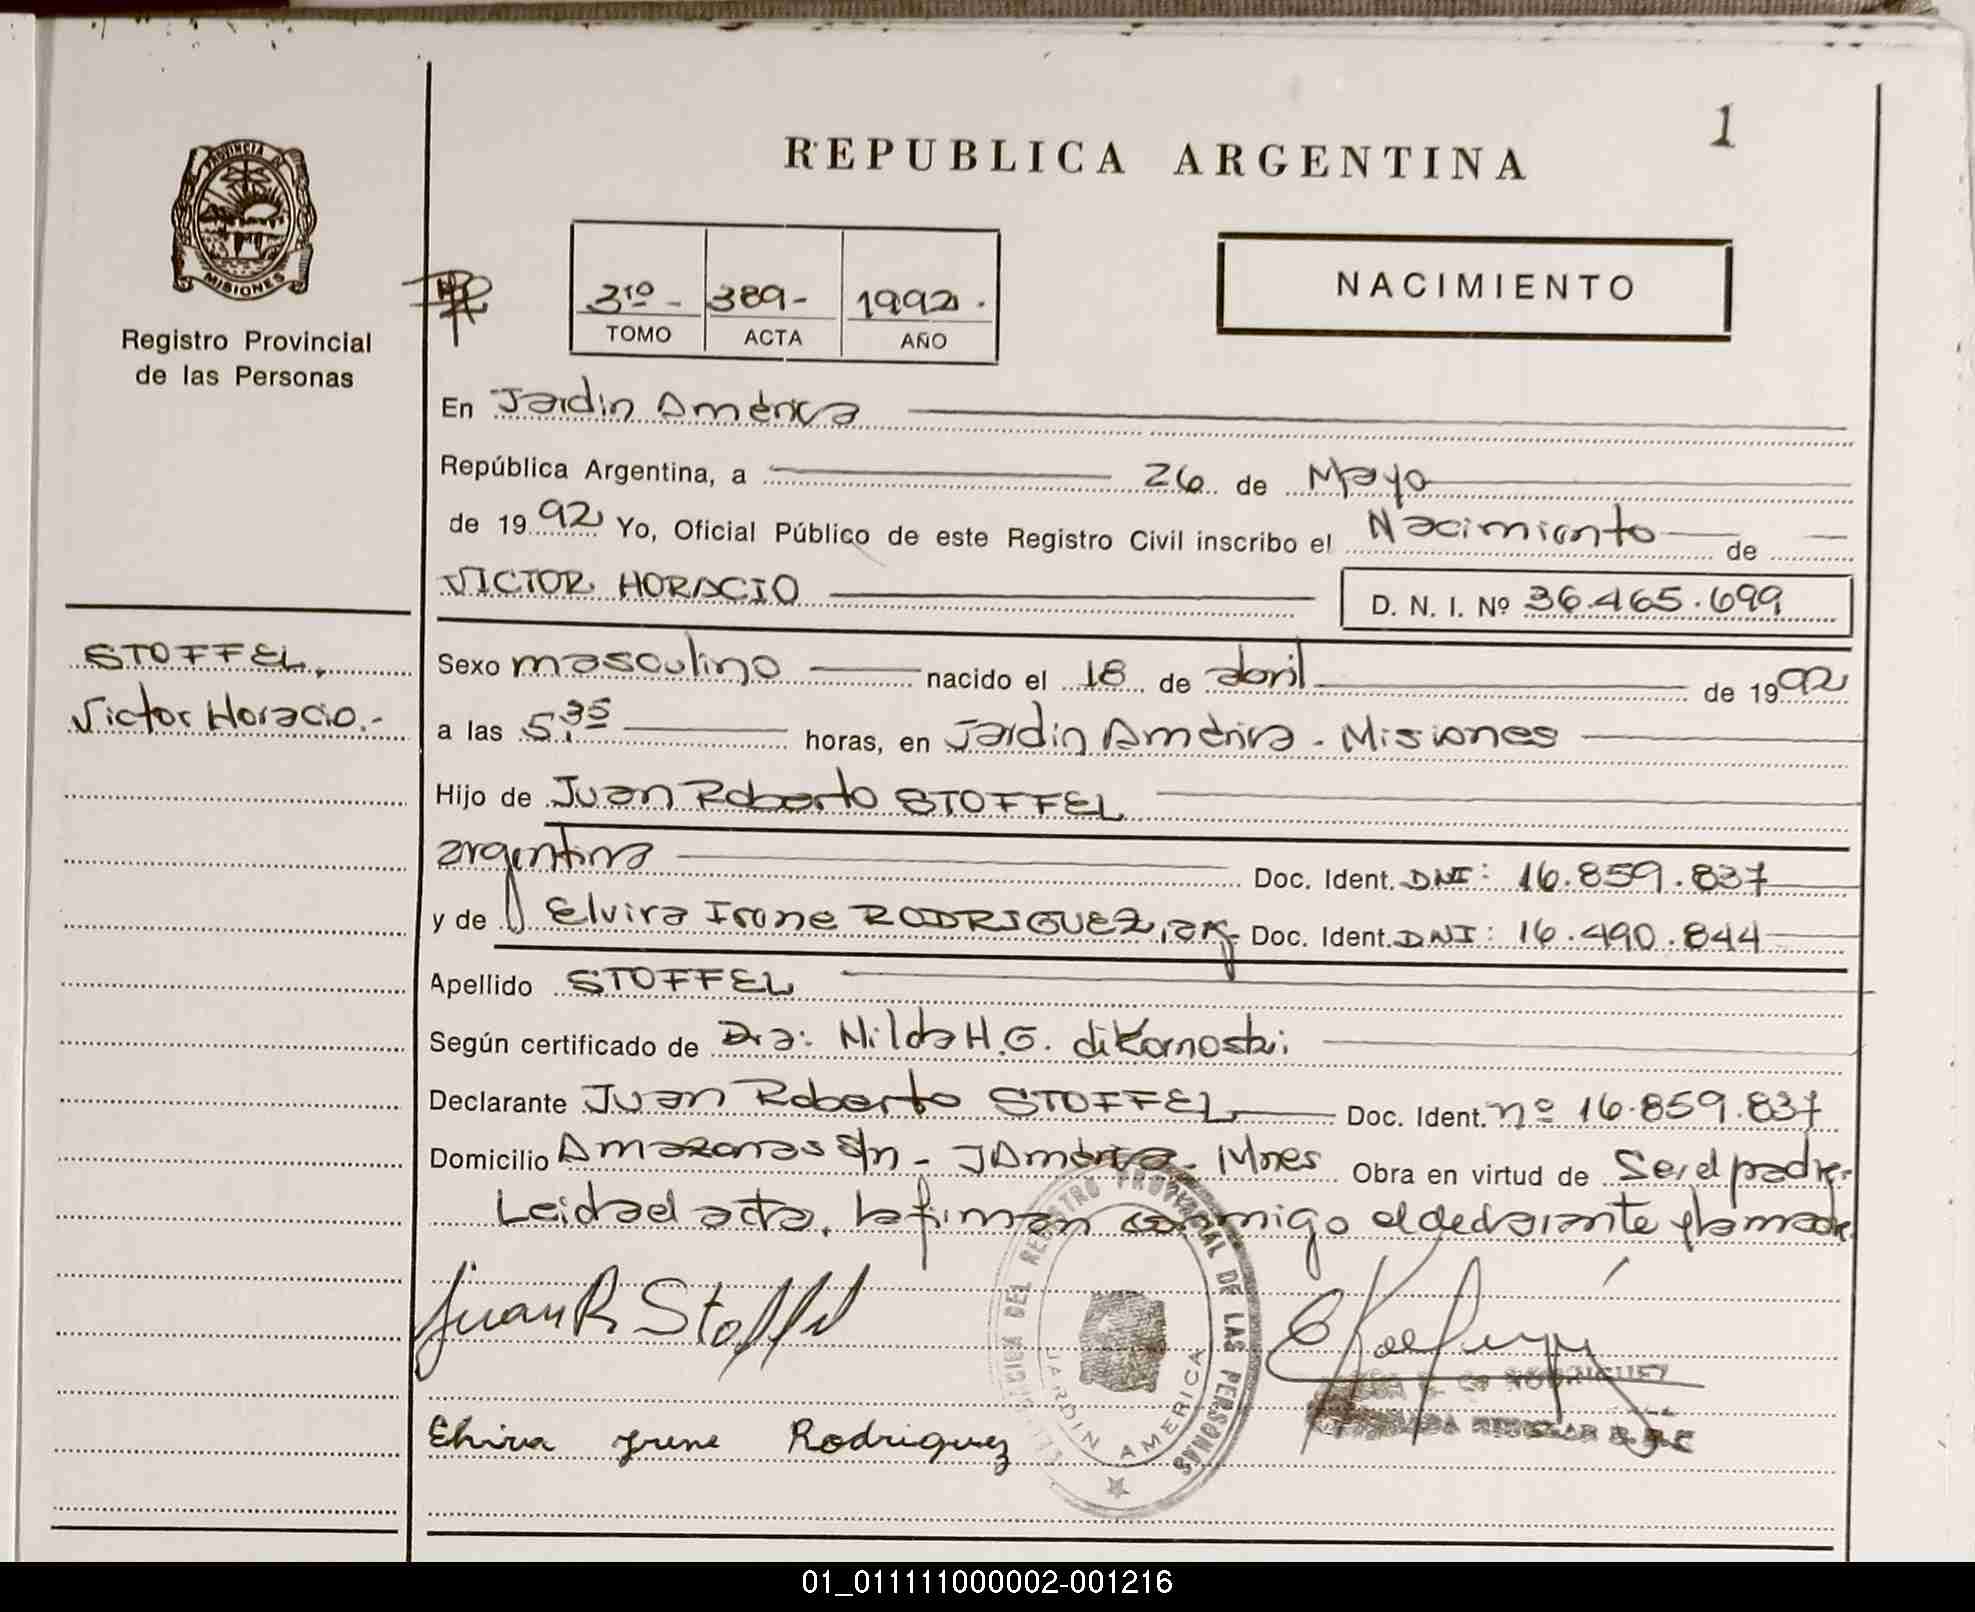 1
REPUBLICA ARGENTINA
PROVINCIA DE
MISIONES
Registro Provincial
de las Personas
3ro - 389- 1992.
TOMO ACTA AÑO
NACIMIENTO
En Jardin América
República Argentina, a 26 de Mayo
de 1992 Yo, Oficial Público de este Registro Civil inscribo el Nacimiento de
VICTOR HORACIO D. N. I. Nº 36.465.699
STOFFEL,
Victor Horacio.-
Sexo masculino nacido el 18 de abril de 1992
a las 5,35 horas, en Jardin América - Misiones
Hijo de Juan Roberto STOFFEL
argentina Doc. Ident. DNI: 16.859.837
y de Elvira Irene RODRIGUEZ, arg. Doc. Ident. DNI: 16.490.844
Apellido STOFFEL
Según certificado de Dra: Nilda H.G. di
Declarante Juan Roberto STOFFEL Doc. Ident. nº 16.859.837
Domicilio Amazonas s/n - J América - Mnes Obra en virtud de Ser el padre-
Leida el acta, la firman conmigo el declarante y la madre.
Juan R Stoffel
DEL REGISTRO PROVINCIAL DE LAS PERSONAS
JARDIN AMERICA
Elvira Irene Rodriguez
01_011111000002-001216